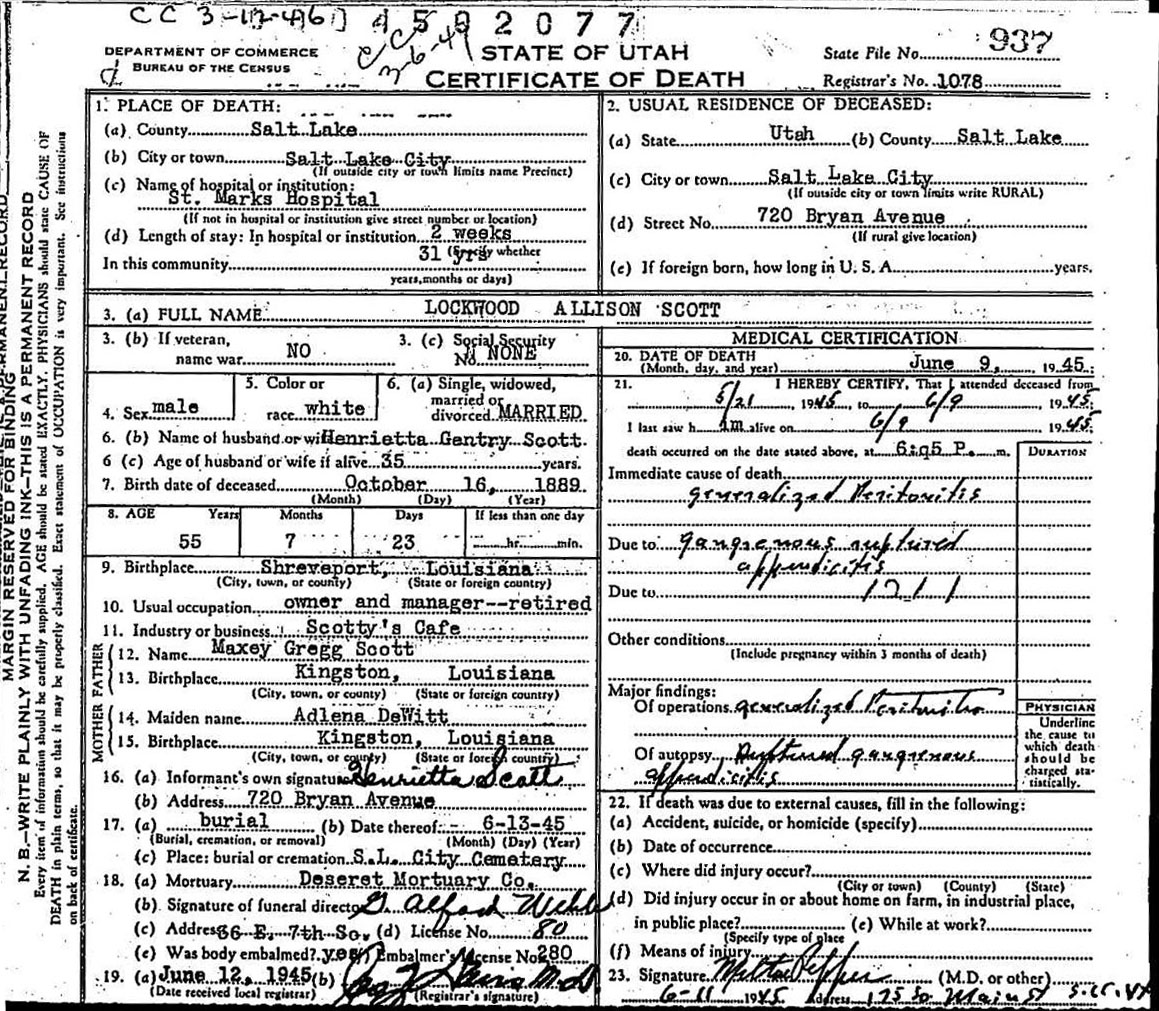 CC 3-12-46
4592077
CC 3-6-47
937
DEPARTMENT OF COMMERCE
BUREAU OF THE CENSUS
STATE OF UTAH
CERTIFICATE OF DEATH
State File No.
Registrar's No. 1078
MARGIN RESERVED FOR BINDING
N. B.—WRITE PLAINLY WITH UNFADING INK—THIS IS A PERMANENT RECORD
Every item of information should be carefully supplied. AGE should be stated EXACTLY. PHYSICIANS should state CAUSE OF
DEATH in plain terms, so that it may be properly classified. Exact statement of OCCUPATION is very important. See instructions
on back of certificate.
1. PLACE OF DEATH:
(a) County Salt Lake
(b) City or town Salt Lake City
(If outside city or town limits name Precinct)
(c) Name of hospital or institution:
St. Marks Hospital
(If not in hospital or institution give street number or location)
(d) Length of stay: In hospital or institution 2 weeks
31 yrs (Specify whether
In this community
years, months or days)
2. USUAL RESIDENCE OF DECEASED:
(a) State Utah (b) County Salt Lake
(c) City or town Salt Lake City
(If outside city or town limits write RURAL)
(d) Street No. 720 Bryan Avenue
(If rural give location)
(e) If foreign born, how long in U. S. A. years.
3. (a) FULL NAME LOCKWOOD ALLISON SCOTT
3. (b) If veteran,
name war NO
3. (c) Social Security
No. NONE
4. Sex male
5. Color or
race white
6. (a) Single, widowed,
married or
divorced MARRIED
6. (b) Name of husband or wife Henrietta Gentry Scott
6 (c) Age of husband or wife if alive 35 years.
7. Birth date of deceased October 16, 1889
(Month) (Day) (Year)
8. AGE Years Months Days If less than one day
55 7 23 hr. min.
9. Birthplace Shreveport, Louisiana
(City, town, or county) (State or foreign country)
10. Usual occupation owner and manager--retired
11. Industry or business Scotty's Cafe
FATHER
12. Name Maxey Gregg Scott
13. Birthplace Kingston, Louisiana
(City, town, or county) (State or foreign country)
MOTHER
14. Maiden name Adlena DeWitt
15. Birthplace Kingston, Louisiana
(City, town, or county) (State or foreign country)
16. (a) Informant's own signature Henrietta Scott
(b) Address 720 Bryan Avenue
17. (a) burial (b) Date thereof 6-13-45
(Burial, cremation, or removal) (Month) (Day) (Year)
(c) Place: burial or cremation S.L. City Cemetery
18. (a) Mortuary Deseret Mortuary Co.
(b) Signature of funeral director G. Alford Webb
(c) Address 36 E. 7th So. (d) License No. 80
(e) Was body embalmed? yes Embalmer's License No 280
19. (a) June 12, 1945 (b) M.D.
(Date received local registrar) (Registrar's signature)
MEDICAL CERTIFICATION
20. DATE OF DEATH
(Month, day, and year) June 9, 1945
21. I HEREBY CERTIFY, That I attended deceased from
5/21, 1945, to 6/9 1945
I last saw h im alive on 6/9 1945
death occurred on the date stated above, at P. m.
DURATION
Immediate cause of death
generalized Peritonitis
Due to gangrenous ruptured
appendicitis
Due to 1211
Other conditions
(Include pregnancy within 3 months of death)
Major findings:
Of operations generalized Peritonitis
Of autopsy Ruptured gangrenous
appendicitis
PHYSICIAN
Underline
the cause to
which death
should be
charged sta-
tistically.
22. If death was due to external causes, fill in the following:
(a) Accident, suicide, or homicide (specify)
(b) Date of occurrence
(c) Where did injury occur?
(City or town) (County) (State)
(d) Did injury occur in or about home on farm, in industrial place,
in public place? (e) While at work?
(Specify type of place
(f) Means of injury
23. Signature Milton Pepper (M.D. or other)
6-11 1945 Address 175 So Main St